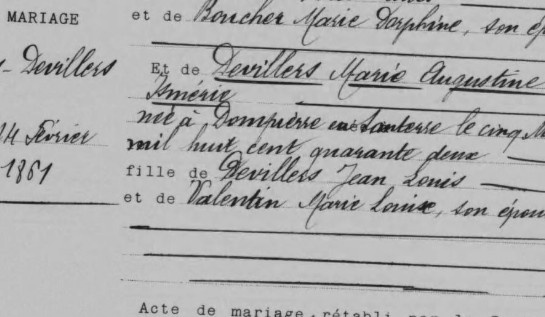 MARIAGE
et de Boucher Marie Dorphine, son ép
- Devillers
Et de Devillers Marie Augustine
Ismérie
née à Dompierre en Santerre le cinq M
14 Février
mil huit cent quarante deux
1861
fille de Devillers Jean Louis
et de Valentin Marie Louise, son épou
Acte de mariage, rétabli par la